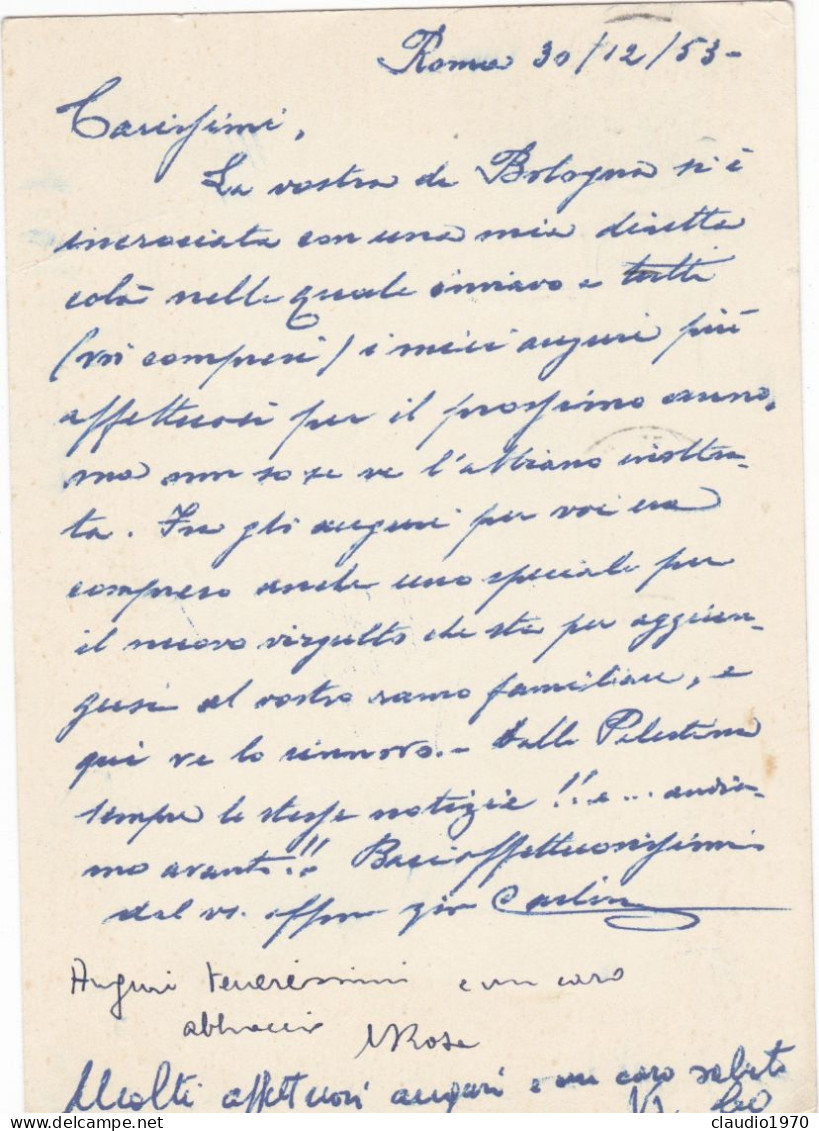 Roma 30/12/53-
Carissimi,
La vostra da Bologna si è
incrociata con una mia diretta
colà nella quale inviavo a tutti
(voi compresi) i miei auguri più
affettuosi per il prossimo anno,
ma non so se ve l'abbiano inoltra-
ta. Fra gli auguri per voi era
compreso anche uno speciale per
il nuovo virgulto che sta per aggiun-
gersi al vostro ramo familiare, e
qui ve lo rinnovo. - Dalla Palestina
sempre le stesse notizie!! e... andia-
mo avanti!! Baci affettuosissimi
dal vs. aff. zio Carlino
Auguri tenerissimi e un caro
abbraccio Rosa
Molti affettuosi auguri e un caro saluto
Vs.
claudio1970